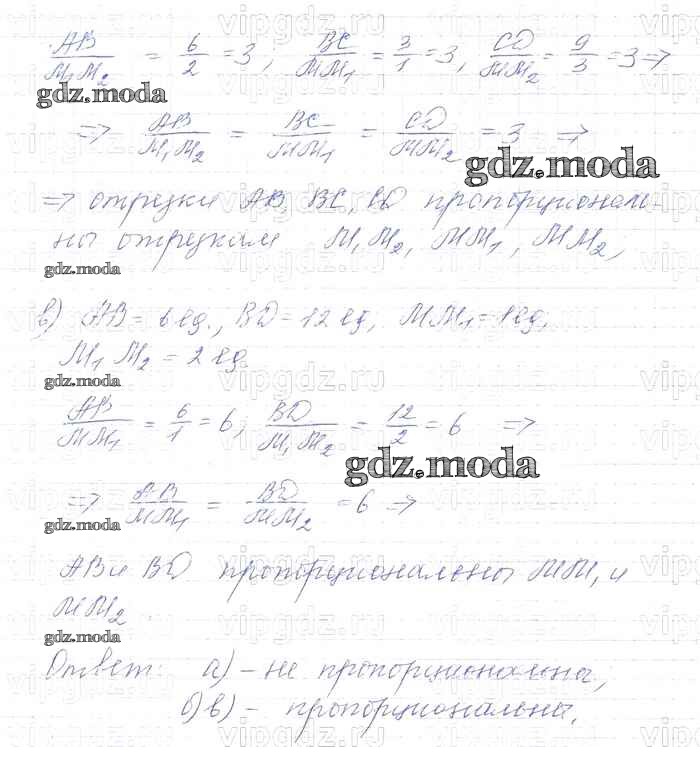 AB/M₁M₂ = 6/2 = 3, BC/MM₁ = 3/1 = 3, CD/MM₂ = 9/3 = 3 ⇒
gdz.moda
⇒ AB/M₁M₂ = BC/MM₁ = CD/MM₂ = 3 ⇒
gdz.moda
⇒ отрезки AB, BC, CD пропорционал-
ны отрезкам M₁M₂, MM₁, MM₂,
gdz.moda
в) AB = 6 ед., BD = 12 ед, MM₁ = 1 ед,
M₁M₂ = 2 ед.
gdz.moda
AB/MM₁ = 6/1 = 6, BD/M₁M₂ = 12/2 = 6 ⇒
gdz.moda
⇒ AB/MM₁ = BD/MM₂ = 6 ⇒
gdz.moda
AB и BD пропорциональны MM₁ и
MM₂.
gdz.moda
Ответ: а) – не пропорциональны,
б) в) – пропорциональны.
vipgdz.ru